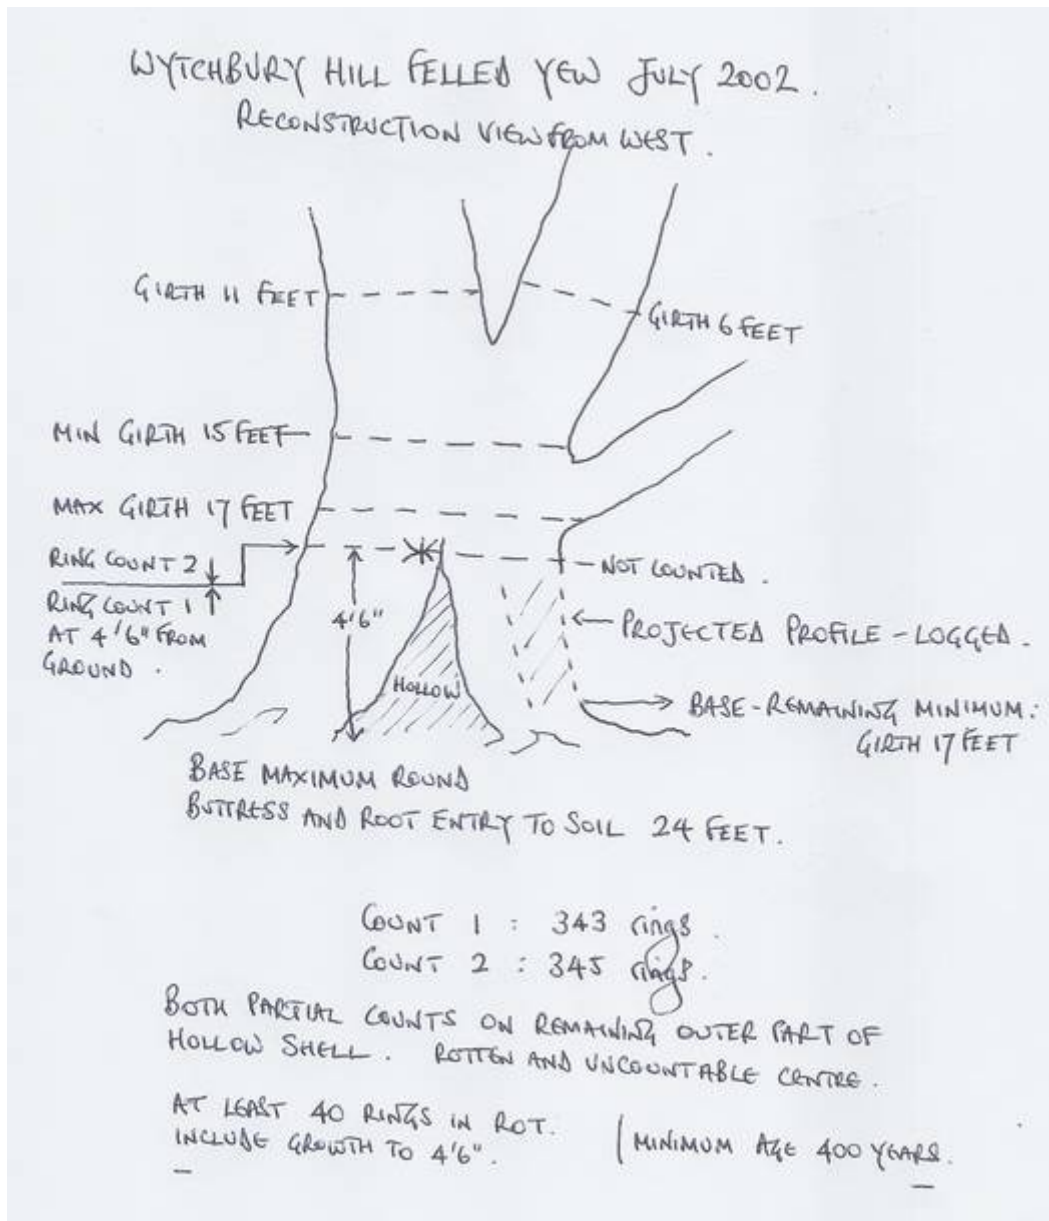 WYTCHBURY HILL FELLED YEW JULY 2002.
RECONSTRUCTION VIEW FROM WEST.
GIRTH 11 FEET
GIRTH 6 FEET
MIN GIRTH 15 FEET
MAX GIRTH 17 FEET
RING COUNT 2
NOT COUNTED.
RING COUNT 1
AT 4'6" FROM
GROUND.
4'6"
PROJECTED PROFILE - LOGGED.
HOLLOW
BASE - REMAINING MINIMUM:
GIRTH 17 FEET
BASE MAXIMUM ROUND
BUTTRESS AND ROOT ENTRY TO SOIL 24 FEET.
COUNT 1 : 343 rings.
COUNT 2 : 345 rings.
BOTH PARTIAL COUNTS ON REMAINING OUTER PART OF
HOLLOW SHELL. ROTTEN AND UNCOUNTABLE CENTRE.
AT LEAST 40 RINGS IN ROT.
INCLUDE GROWTH TO 4'6".
MINIMUM AGE 400 YEARS.